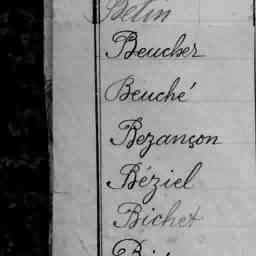 Belin
Beucher
Beuché
Bezançon
Béziel
Bichet